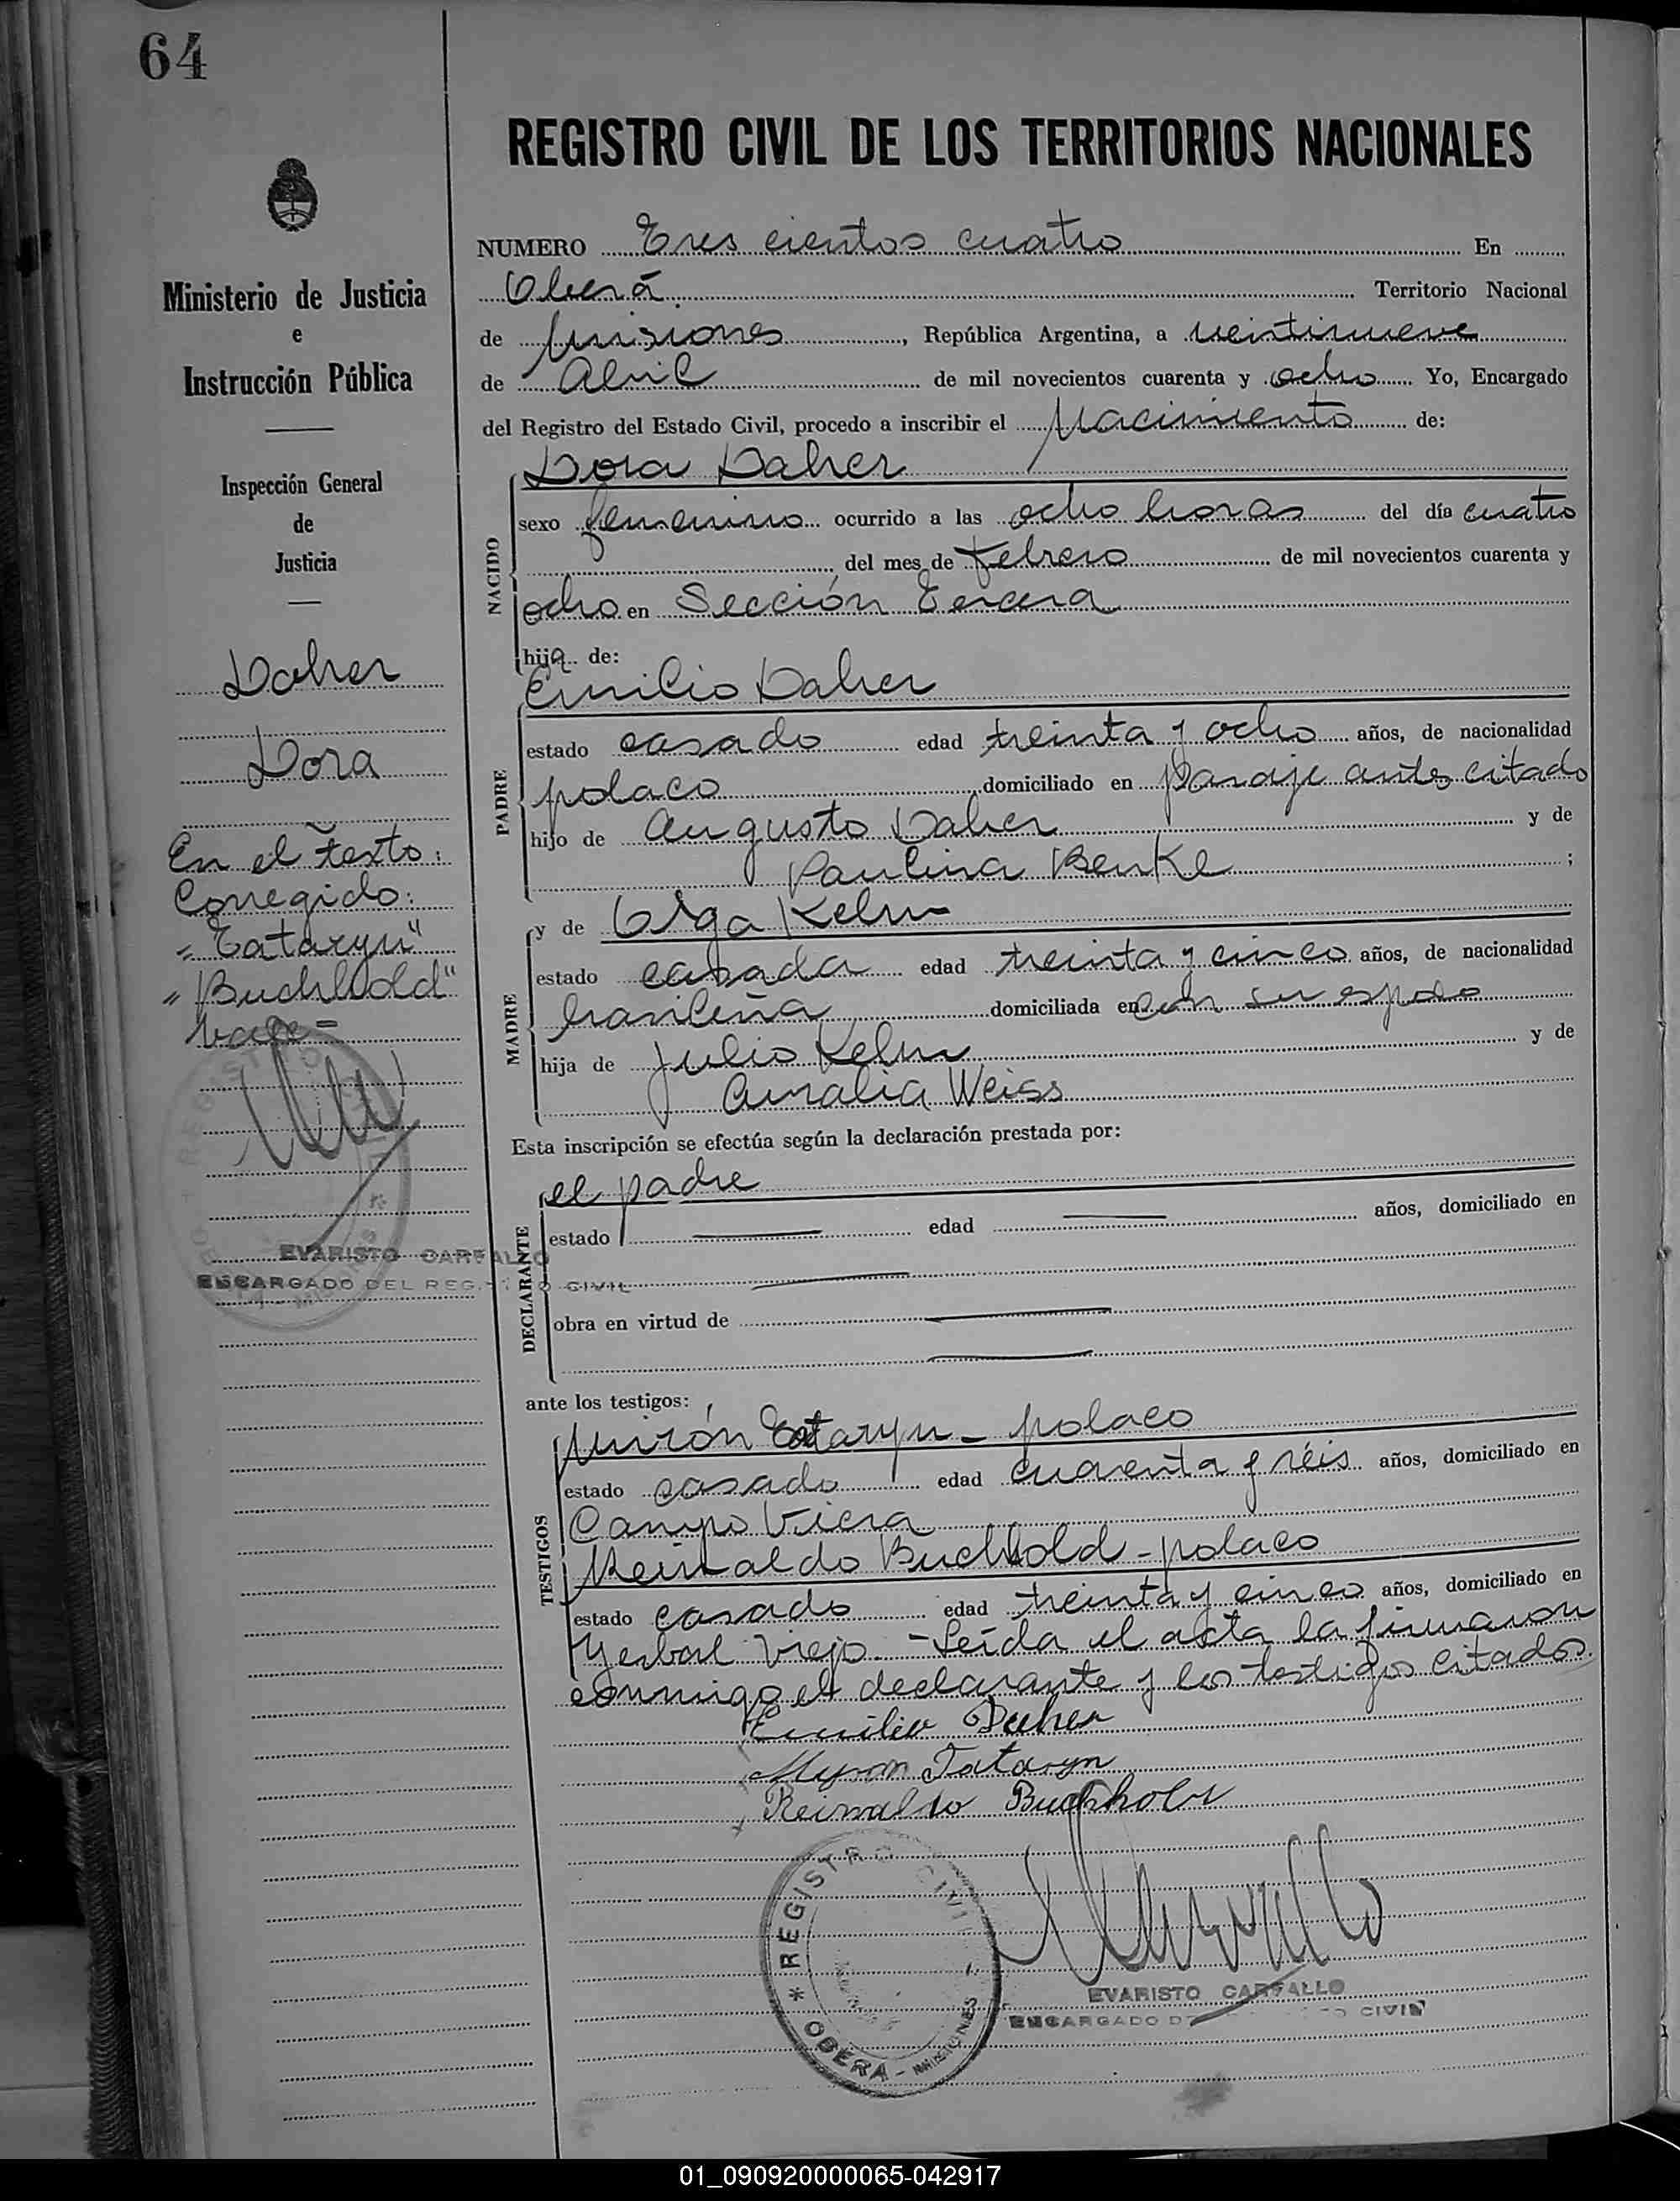 64
REGISTRO CIVIL DE LOS TERRITORIOS NACIONALES
Ministerio de Justicia
e
Instrucción Pública
Inspección General
de
Justicia
Daher
Dora
En el texto:
Corregido:
"Tataryn"
"Buchhold"
Vale=
EVARISTO CARFALLO
ENCARGADO DEL REG. CIVIL
NUMERO Tres cientos cuatro En
Oberá Territorio Nacional
de Misiones, República Argentina, a veintinueve
de Abril de mil novecientos cuarenta y ocho Yo, Encargado
del Registro del Estado Civil, procedo a inscribir el Nacimiento de:
Dora Daher
NACIDO
sexo femenino ocurrido a las ocho horas del día cuatro
del mes de Febrero de mil novecientos cuarenta y
ocho en Sección Tercera
hija de:
Emilio Daher
PADRE
estado casado edad treinta y ocho años, de nacionalidad
polaco domiciliado en paraje antes citado
hijo de Augusto Daher y de
Paulina Benke ;
y de Olga Kelm
MADRE
estado casada edad treinta y cinco años, de nacionalidad
brasileña domiciliada en con su esposo
hija de Julio Kelm y de
Amalia Weiss
Esta inscripción se efectúa según la declaración prestada por:
el padre
DECLARANTE
estado edad años, domiciliado en
obra en virtud de
ante los testigos:
Mirón Tataryn - polaco
TESTIGOS
estado casado edad cuarenta y séis años, domiciliado en
Campo Viera
Reinaldo Buchhold - polaco
estado casado edad treinta y cinco años, domiciliado en
Yerbal Viejo. - Leída el acta la firmaron
conmigo el declarante y los testigos citados.
Emilio Daher
Myron Tataryn
Reinaldo Buchholz
REGISTRO CIVIL
* OBERA - MISIONES
EVARISTO CARFALLO
ENCARGADO D CIVIL
01_090920000065-042917